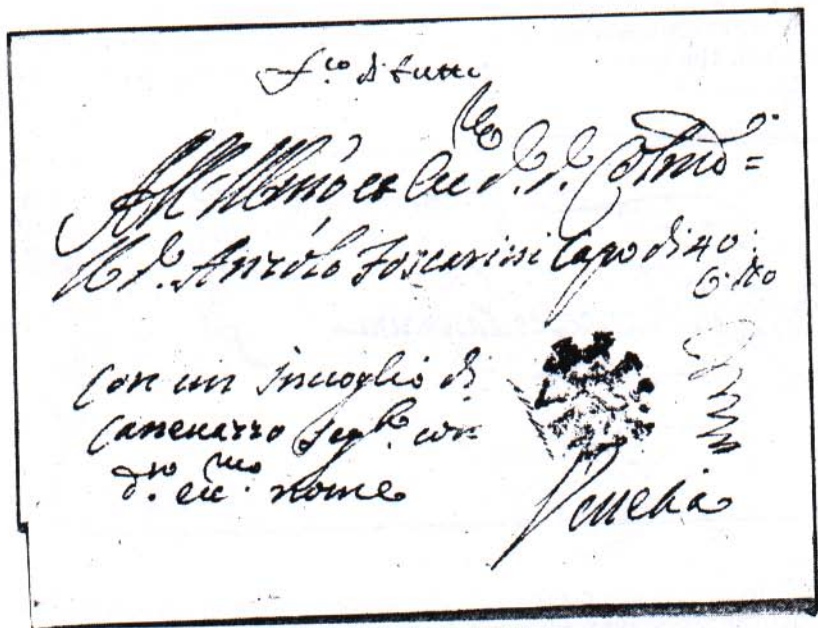 f.co di tutto
All Illmo et Ecc mo S.r S.r Colmo =
Il S.r Anzolo Foscarini Capo di 40:
Con un Invoglio di
Canevazzo con
d.to ecc.mo nome
Venetia